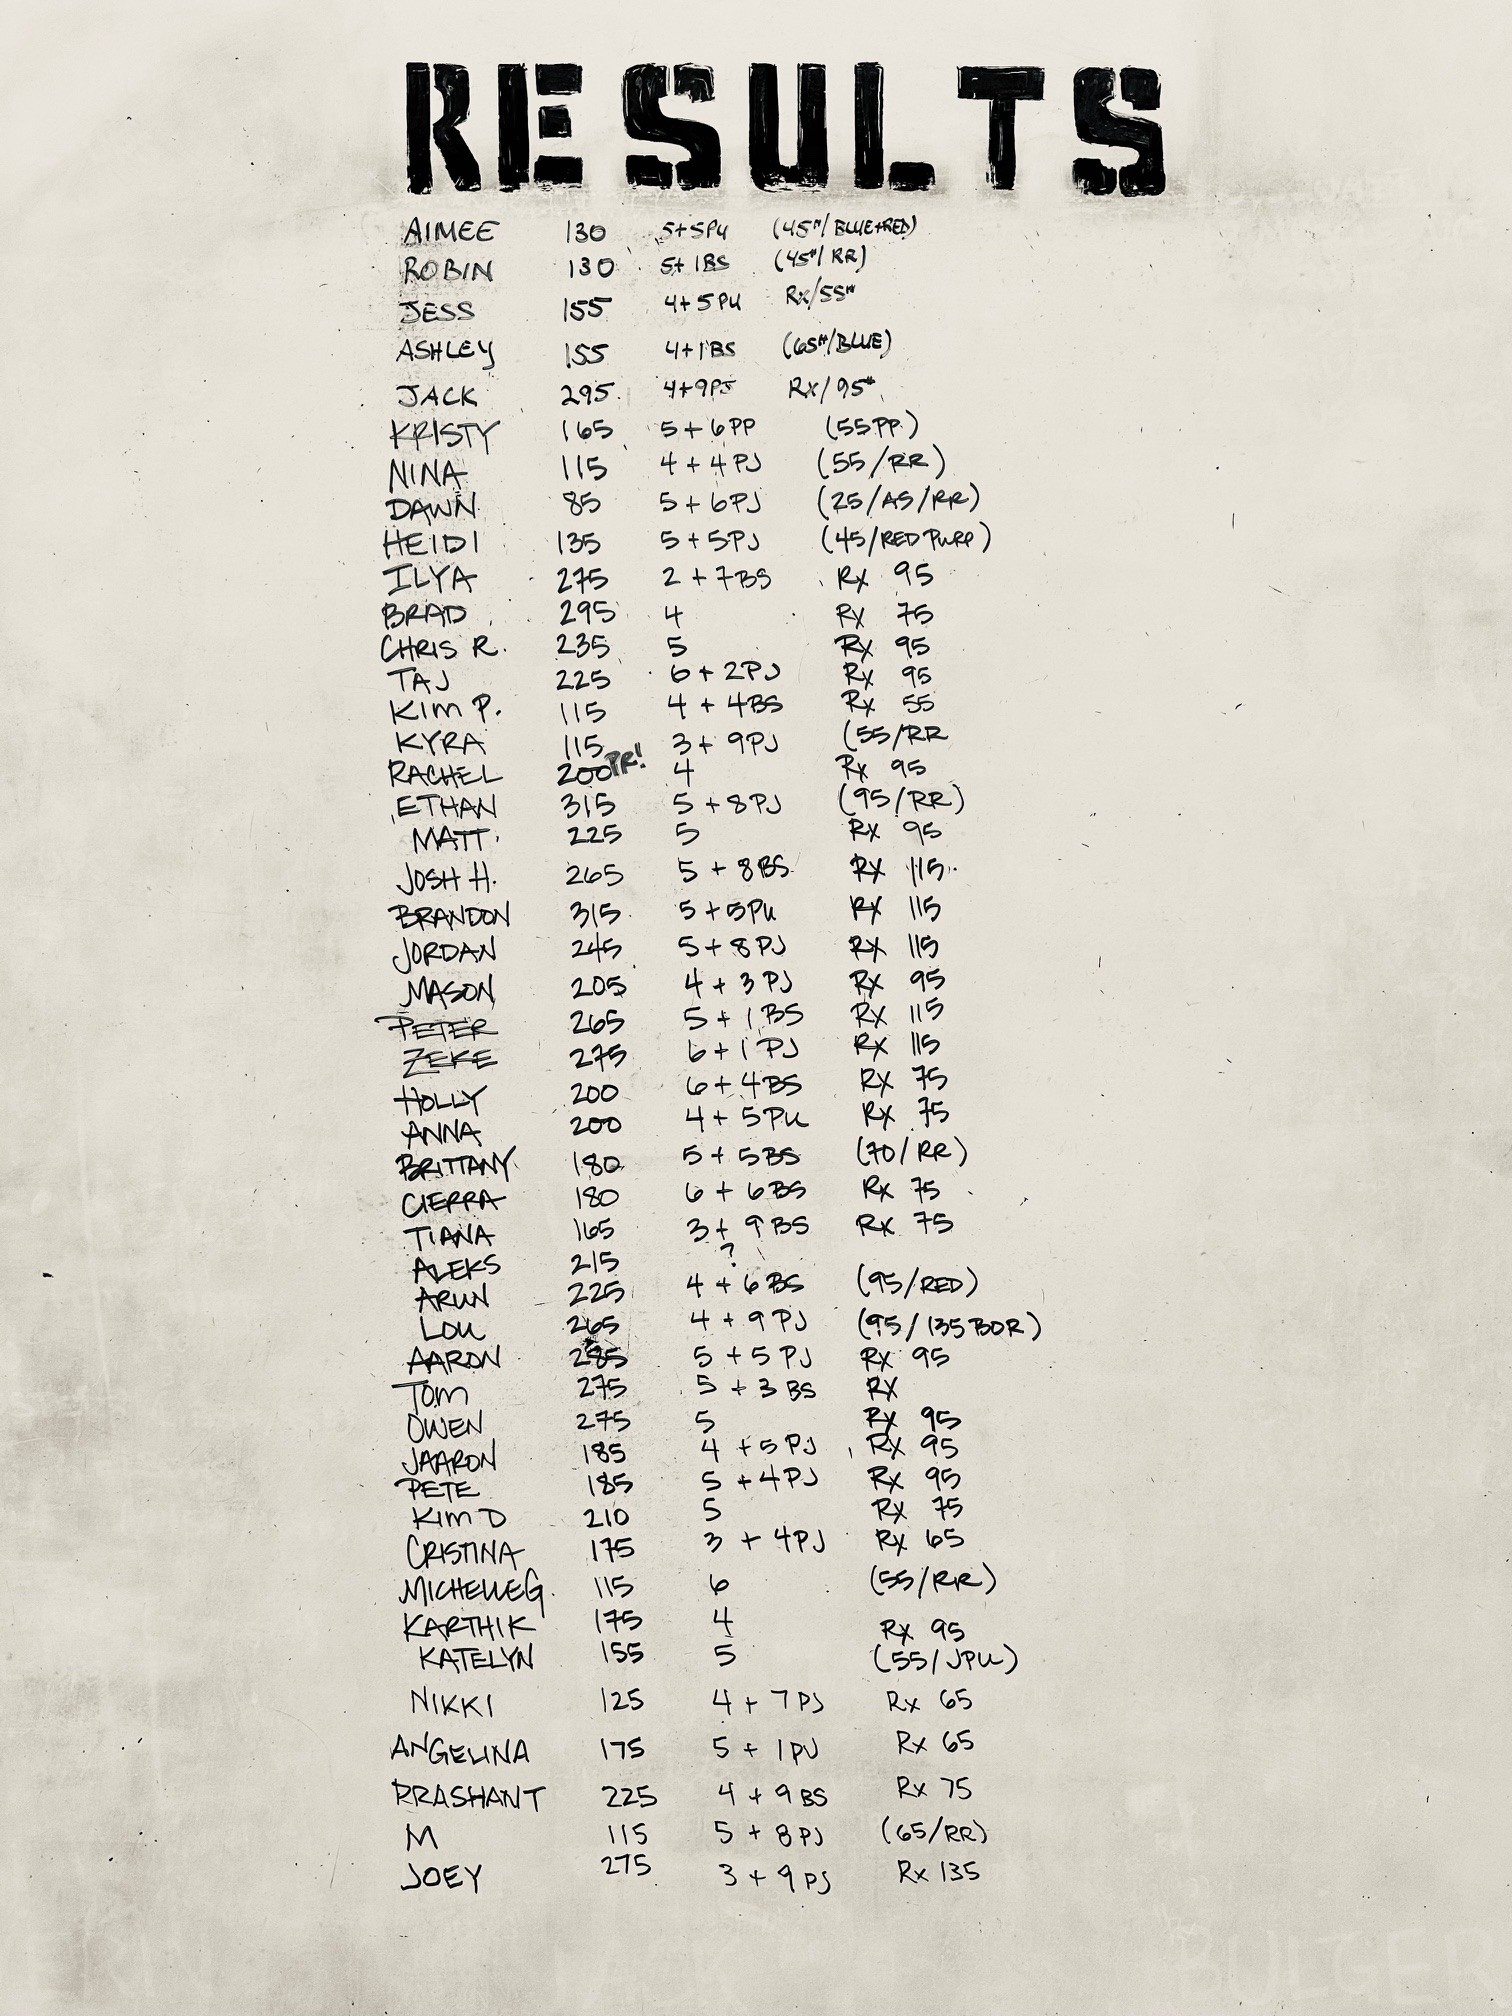 RESULTS
AIMEE 130 5+5PU (45#/BLUE+RED)
ROBIN 130 5+1BS (45#/RR)
JESS 155 4+5PU Rx/55#
ASHLEY 155 4+1BS (65#/BLUE)
JACK 295 4+9PJ Rx/95#
KRISTY 165 5+6PP (55PP)
NINA 115 4+4PJ (55/RR)
DAWN 85 5+6PJ (25/AS/RR)
HEIDI 135 5+5PJ (45/RED PURP)
ILYA 275 2+7BS Rx 95
BRAD 295 4 Rx 75
CHRIS R. 235 5 Rx 95
TAJ 225 6+2PJ Rx 95
KIM P. 115 4+4BS Rx 55
KYRA 115 3+9PJ (55/RR
RACHEL 200 PR! 4 Rx 95
ETHAN 315 5+8PJ (95/RR)
MATT 225 5 Rx 95
JOSH H. 265 5+8BS Rx 115
BRANDON 315 5+5PU Rx 115
JORDAN 245 5+8PJ Rx 115
MASON 205 4+3PJ Rx 95
PETER 265 5+1BS Rx 115
ZEKE 275 6+1PJ Rx 115
HOLLY 200 6+4BS Rx 75
ANNA 200 4+5PU Rx 75
BRITTANY 180 5+5BS (70/RR)
CIERRA 180 6+6BS Rx 75
TIANA 165 3+9BS Rx 75
ALEKS 215 ?
ARUN 225 4+6BS (95/RED)
LOU 265 4+9PJ (95/135BOR)
AARON 285 5+5PJ Rx 95
TOM 275 5+3BS Rx
OWEN 275 5 Rx 95
JAARON 185 4+5PJ Rx 95
PETE 185 5+4PJ Rx 95
KIM D 210 5 Rx 75
CRISTINA 175 3+4PJ Rx 65
MICHELLE G. 115 6 (55/RR)
KARTHIK 175 4 Rx 95
KATELYN 155 5 (55/JPU)
NIKKI 125 4+7PJ Rx 65
ANGELINA 175 5+1PU Rx 65
PRASHANT 225 4+9BS Rx 75
M 115 5+8PJ (65/RR)
JOEY 275 3+9PJ Rx 135
BULGER